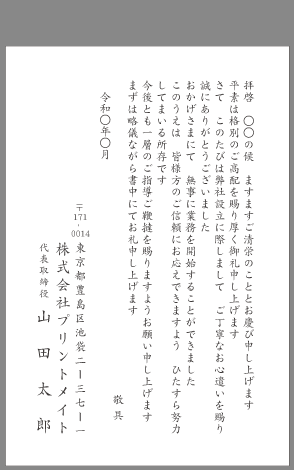 拝啓　〇〇の候　ますますご清栄のこととお慶び申し上げます
平素は格別のご高配を賜り厚く御礼申し上げます
さて　このたびは弊社設立に際しまして　ご丁寧なお心遣いを賜り
誠にありがとうございました
おかげさまにて　無事に業務を開始することができました
このうえは　皆様方のご信頼にお応えできますよう　ひたすら努力
してまいる所存です
今後とも一層のご指導ご鞭撻を賜りますようお願い申し上げます
まずは略儀ながら書中にてお礼申し上げます
敬具
令和〇年〇月
〒171-0014
東京都豊島区池袋二ー三七ー一
株式会社プリントメイト
代表取締役　山田太郎